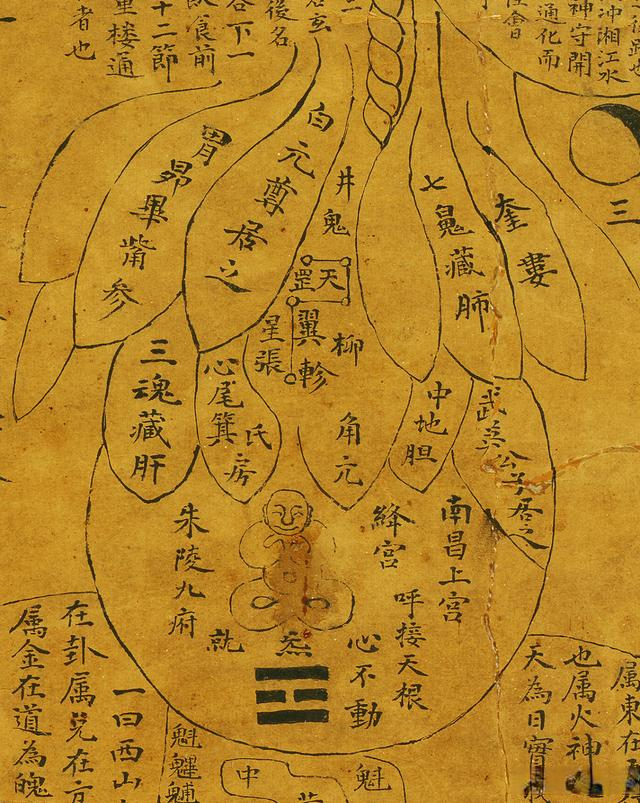 者也
里楼通
十二節
飲食前
合下一
後名
名玄
三
往會
通化而
神守開
冲湘江水
三
胃昴畢觜参
白元尊居之
井鬼
天罡
翼軫
星張
柳
七鬼藏肺
奎婁
三魂藏肝
心尾箕
氏房
角亢
中地胆
武英公子居之
朱陵九府
就
炁
絳宮
南昌上宮
呼接天根
心不動
在卦属兑在方
属金在道為魄
一曰西山
魁魓魒
中
魁
属東在
也属火神
天為日實